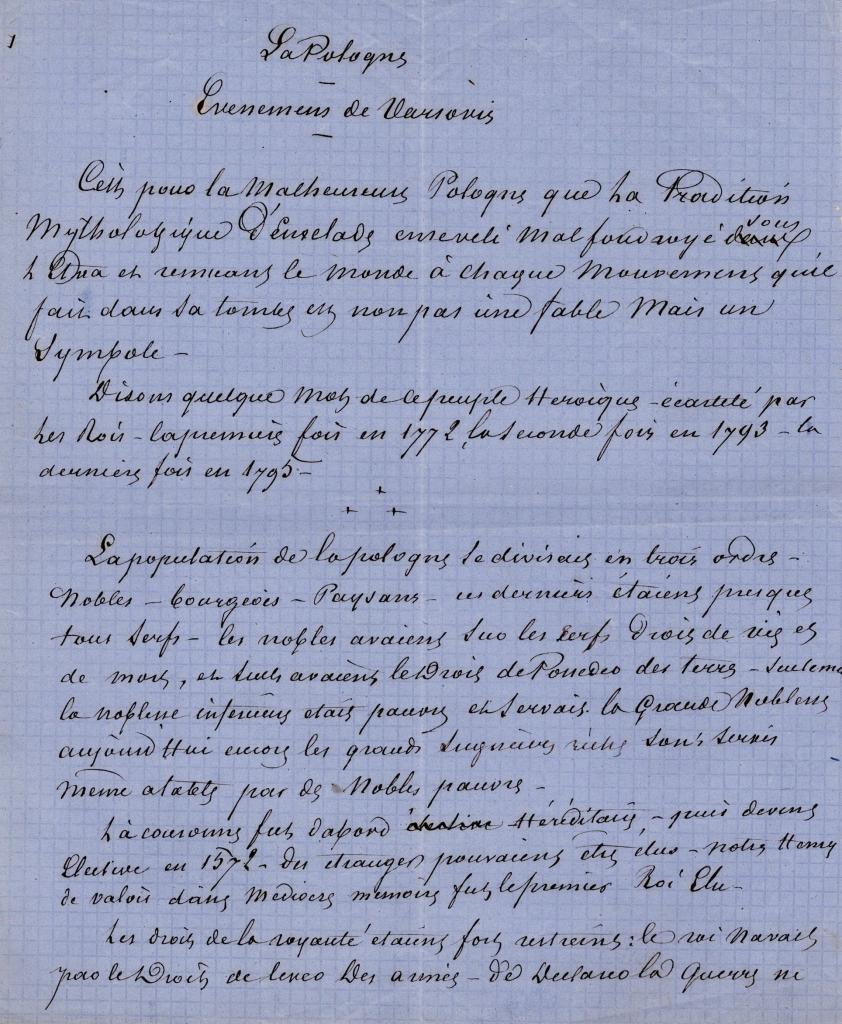 1
La Pologne
Evenemens de Varsovie
C'est pour la Malheureuse Pologne que La Tradition
Mythologique D'Enselade enseveli Mal foudroyé sous
L Etna et remuant le Monde à chaque Mouvement qu'il
fait dans sa tombe est non pas une fable Mais un
Symbole —
Disons quelque Mots de ce peuple Heroïque — écartelé par
Les Rois — la premiere fois en 1772, la seconde fois en 1793 — la
derniere fois en 1795 —
+ + +
La population de la pologne se divisait en trois ordre —
Nobles — Bourgeois — Paysans — ces derniers étaient presque
tous Serfs — les nobles avaient sur les serfs Droit de vie et
de mort, et seuls avaient le Droit de Posseder des terre — seulement
la noblesse inferieure etait pauvre et servait la Grande Noblesse
aujourd'Hui encore les grands Seigneurs riche sont servis
même a table par des Nobles pauvre —
La couronne fut d'abord élective Héréditaire — puis devint
Elective en 1572 — des etranger pouvaient être élus — notre Henry
de valois dans Mediocre memoire fut le premier Roi Elu —
Les droits de la royauté etaient fort restreint : le roi Navait
pas le Droit de lever Des armée — de Declarer la Guerre ni